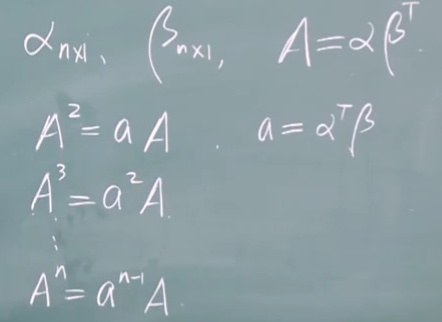 α_{n×1}、 β_{n×1}, A=αβ^T.
A^2=aA. a=α^Tβ
A^3=a^2A.
⋮
A^n=a^{n-1}A.